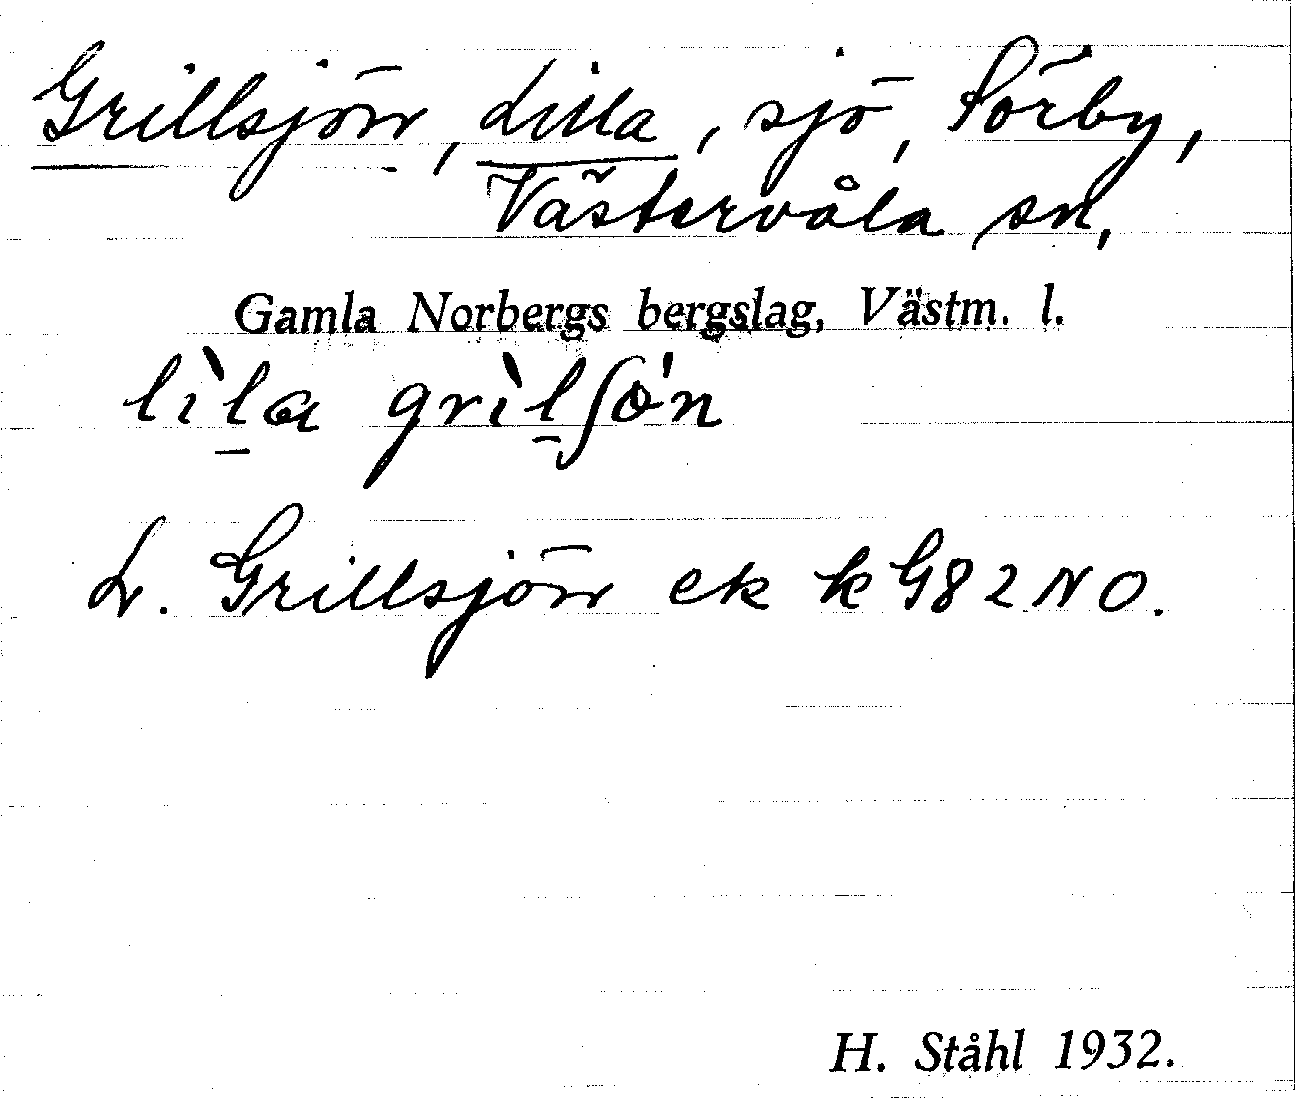 Grillsjön, Lilla, sjö, Sörby,
Västervåla sn,
Gamla Norbergs bergslag, Västm. l.
lìl̠a grìl̠ʃön
L. Grillsjön ek k G82NO.
H. Ståhl 1932.